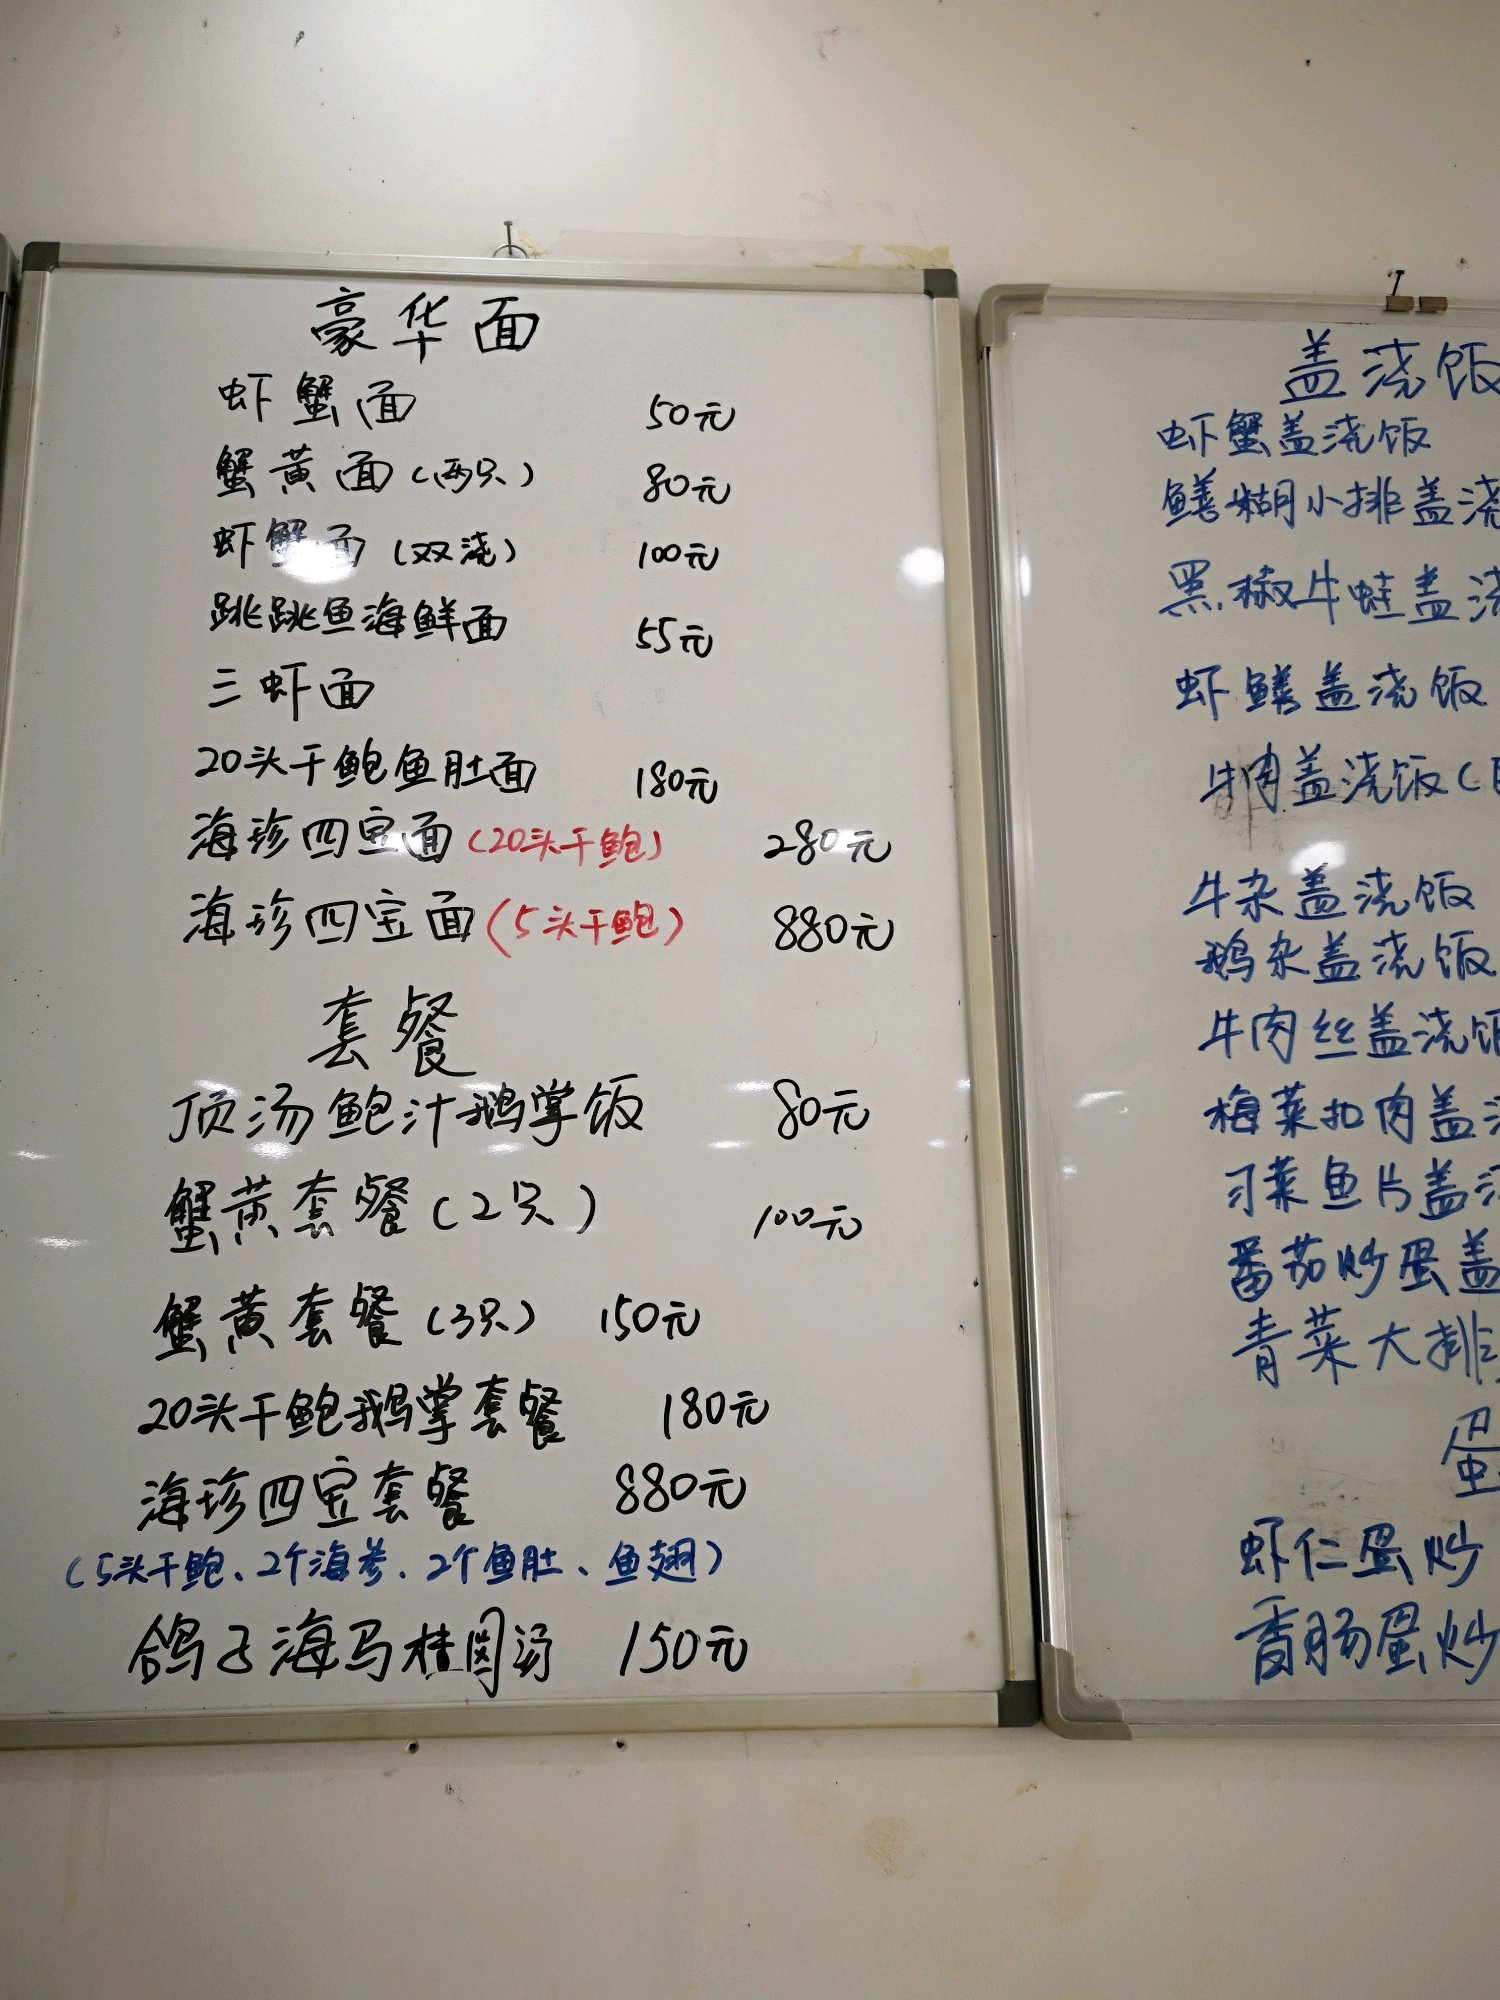 豪华面
虾蟹面 50元
蟹黄面(两只) 80元
虾蟹面(双浇) 100元
跳跳鱼海鲜面 55元
三虾面
20头干鲍鱼肚面 180元
海珍四宝面(20头干鲍) 280元
海珍四宝面(5头干鲍) 880元
套餐
顶汤鲍汁鹅掌饭 80元
蟹黄套餐(2只) 100元
蟹黄套餐(3只) 150元
20头干鲍鹅掌套餐 180元
海珍四宝套餐 880元
(5头干鲍、2个海参、2个鱼肚、鱼翅)
鸽子海马桂圆汤 150元
盖浇饭
虾蟹盖浇饭
鳝糊小排盖浇
黑椒牛蛙盖浇
虾鳝盖浇饭
牛肉盖浇饭(
牛杂盖浇饭
鹅杂盖浇饭
牛肉丝盖浇饭
梅菜扣肉盖浇
刁菜鱼片盖浇
番茄炒蛋盖
青菜大排
蛋
虾仁蛋炒
香肠蛋炒